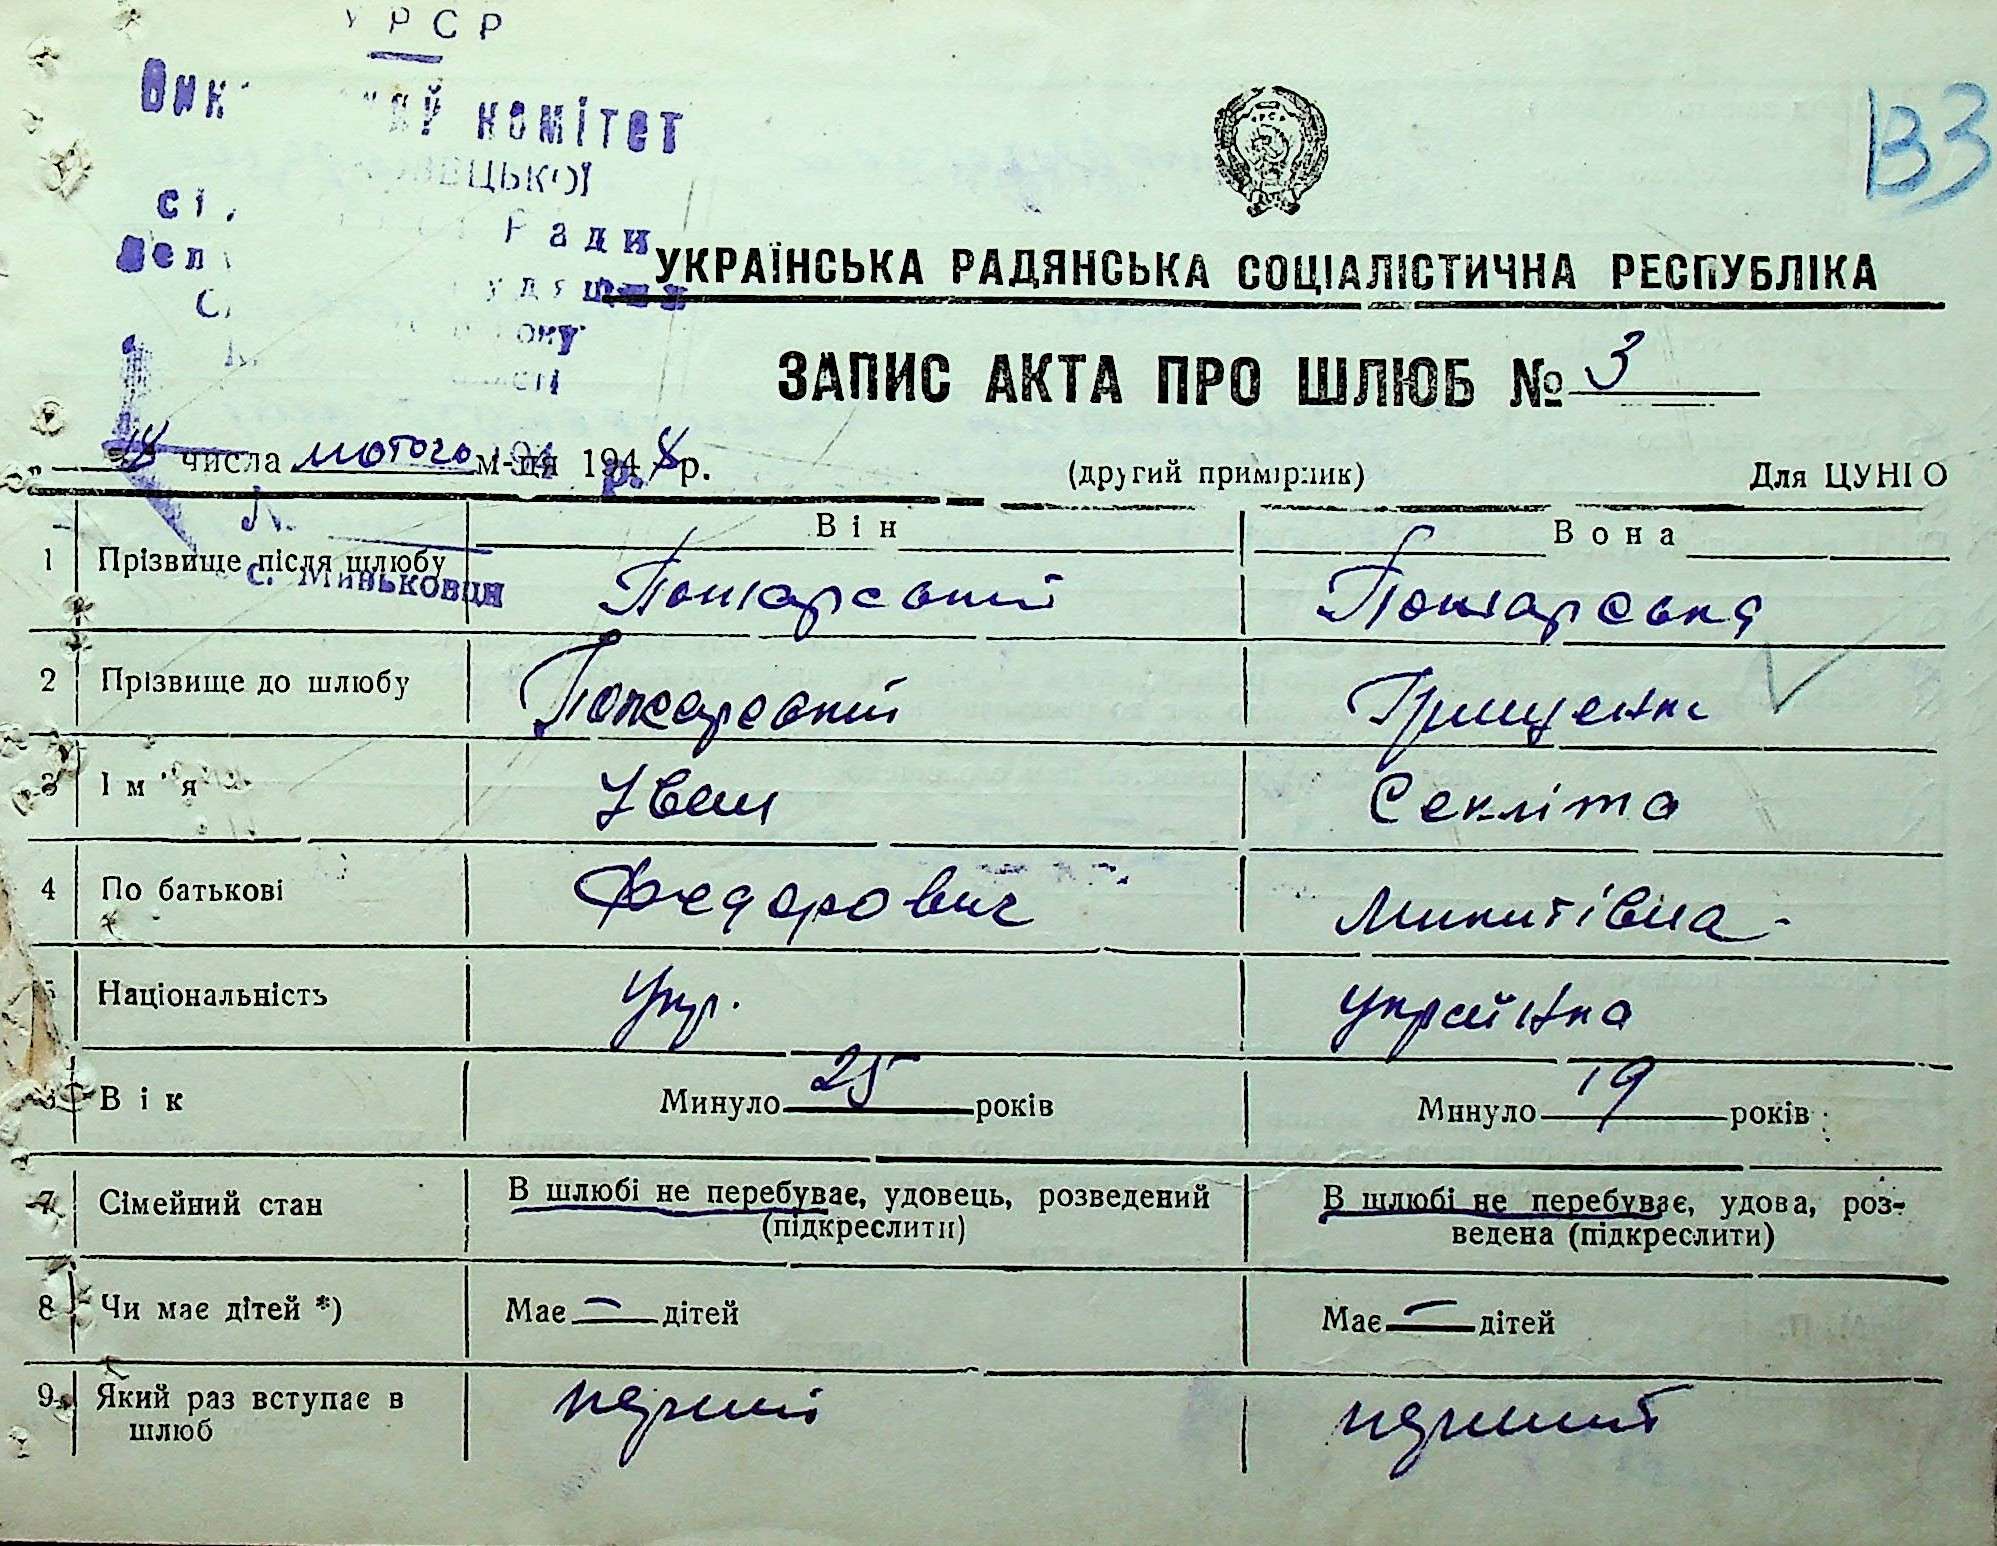 УРСР
комітет
Ради
133
УКРАЇНСЬКА РАДЯНСЬКА СОЦІАЛІСТИЧНА РЕСПУБЛІКА
ЗАПИС АКТА ПРО ШЛЮБ № 3
18 числа лютого м-ця 1948 р. (другий примірник) Для ЦУНІО
Він Вона
1 Прізвище після шлюбу Пожарський Пожарська
с. Миньковци
2 Прізвище до шлюбу Пожарський Грищенко
3 Ім'я Іван Секліта
4 По батькові Федорович Микитівна
5 Національність Укр. Українка
6 Вік Минуло 25 років Минуло 19 років
7 Сімейний стан В шлюбі не перебуває, удовець, розведений (підкреслити) В шлюбі не перебуває, удова, роз-
ведена (підкреслити)
8 Чи має дітей *) Має — дітей Має — дітей
9 Який раз вступає в перший перший
шлюб